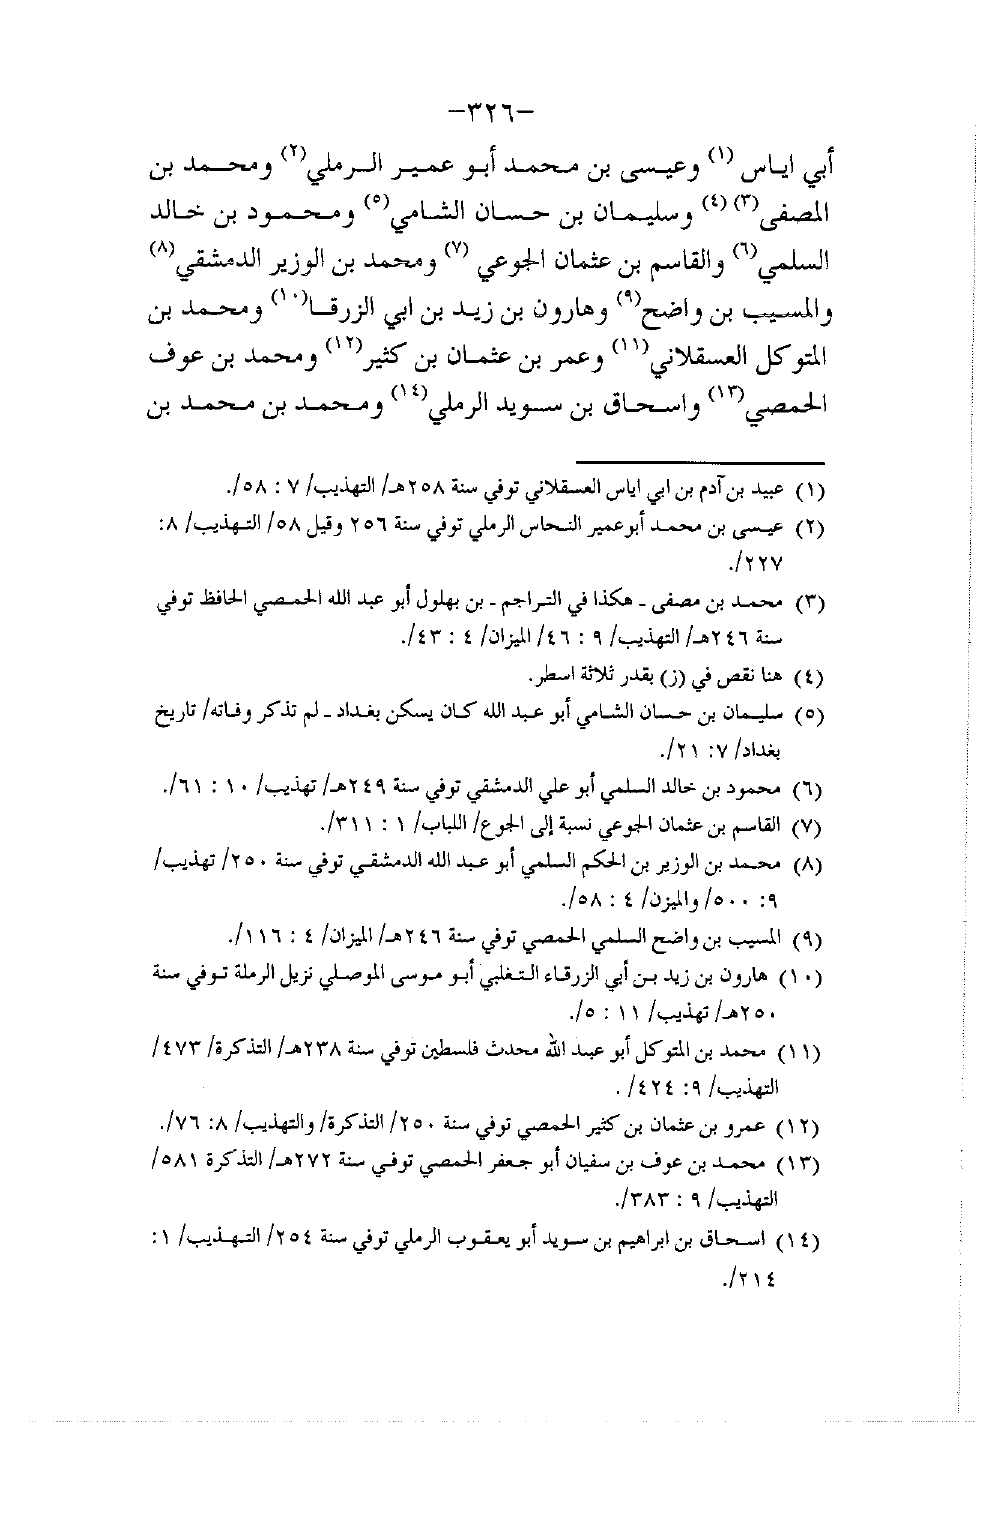 -٣٢٦-
أبي اياس (١) وعيسى بن محمد أبو عمير الرملي(٢) ومحمد بن
المصفى(٣) (٤) وسليمان بن حسان الشامي(٥) ومحمود بن خالد
السلمي(٦) والقاسم بن عثمان الجوعي (٧) ومحمد بن الوزير الدمشقي(٨)
والمسيب بن واضح(٩) وهارون بن زيد بن ابي الزرقا(١٠) ومحمد بن
المتوكل العسقلاني(١١) وعمر بن عثمان بن كثير(١٢) ومحمد بن عوف
الحمصي(١٣) واسحاق بن سويد الرملي(١٤) ومحمد بن محمد بن
(١) عبيد بن آدم بن ابي اياس العسقلاني توفي سنة ٢٥٨هـ/ التهذيب/ ٧ : ٥٨/.
(٢) عيسى بن محمد أبو عمير النحاس الرملي توفي سنة ٢٥٦ وقيل ٥٨/ التهذيب/ ٨:
٢٢٧/.
(٣) محمد بن مصفى ـ هكذا في التراجم ـ بن بهلول أبو عبد الله الحمصي الحافظ توفي
سنة ٢٤٦هـ/ التهذيب/ ٩ : ٤٦/ الميزان/ ٤ : ٤٣/.
(٤) هنا نقص في (ز) بقدر ثلاثة اسطر.
(٥) سليمان بن حسان الشامي أبو عبد الله كان يسكن بغداد ـ لم تذكر وفاته/ تاريخ
بغداد/ ٧: ٢١/.
(٦) محمود بن خالد السلمي أبو علي الدمشقي توفي سنة ٢٤٩هـ/ تهذيب/ ١٠ : ٦١/.
(٧) القاسم بن عثمان الجوعي نسبة إلى الجوع/ اللباب/ ١ : ٣١١/.
(٨) محمد بن الوزير بن الحكم السلمي أبو عبد الله الدمشقي توفي سنة ٢٥٠/ تهذيب/
٩: ٥٠٠/ والميزن/ ٤ : ٥٨/.
(٩) المسيب بن واضح السلمي الحمصي توفي سنة ٢٤٦هـ/ الميزان/ ٤ : ١١٦/.
(١٠) هارون بن زيد بن أبي الزرقاء التغلبي أبو موسى الموصلي نزيل الرملة توفي سنة
٢٥٠هـ/ تهذيب/ ١١ : ٥/.
(١١) محمد بن المتوكل أبو عبد الله محدث فلسطين توفي سنة ٢٣٨هـ/ التذكرة/ ٤٧٣/
التهذيب/ ٩: ٤٢٤/ .
(١٢) عمرو بن عثمان بن كثير الحمصي توفي سنة ٢٥٠/ التذكرة/ والتهذيب/ ٨: ٧٦/.
(١٣) محمد بن عوف بن سفيان أبو جعفر الحمصي توفي سنة ٢٧٢هـ/ التذكرة ٥٨١/
التهذيب/ ٩ : ٣٨٣/.
(١٤) اسحاق بن ابراهيم بن سويد أبو يعقوب الرملي توفي سنة ٢٥٤/ التهذيب/ ١:
٢١٤/.